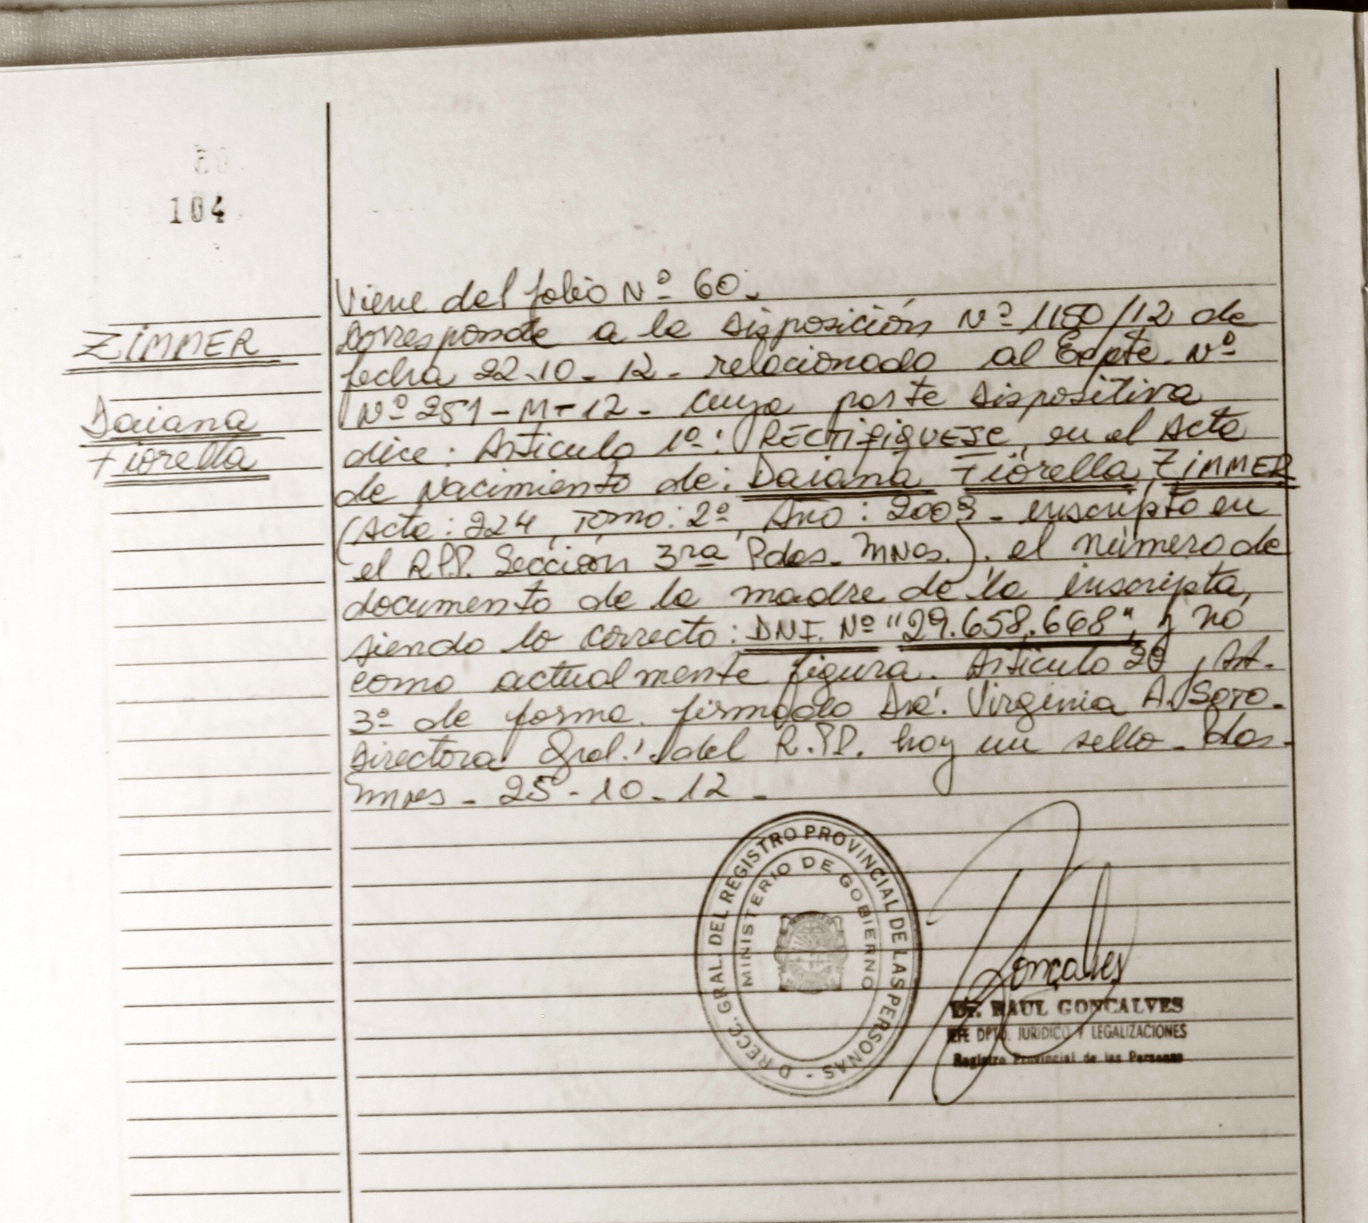 104
ZIMMER
Daiana
Fiorella
Viene del folio Nº 60.
Corresponde a la Disposición Nº 1150/12 de
fecha 22-10-12- relacionado al Expte. Nº
Nº 251-M-12- cuya parte Dispositiva
dice: Artículo 1º: RECTIFIQUESE, en el Acta
de Nacimiento de: Daiana Fiorella ZIMMER
(Acta: 224, Tomo: 2º, Año: 2003- inscripto en
el R.P.P. Sección 3ra Pdas. Mnes.). el número de
documento de la madre de la inscripta,
siendo lo correcto: DNI. Nº "29.658.668", y no
como actualmente figura. Artículo 2º, Art.
3º de forma. firmado Dra. Virginia A. Soto-
Directora Gral. del R.P.P. hay un sello- Pdas-
Mnes- 25-10-12-
DIRECC. GRAL. DEL REGISTRO PROVINCIAL DE LAS PERSONAS -
MINISTERIO DE GOBIERNO
Goncalves
Dr. RAUL GONCALVES
JEFE DPTO. JURIDICO Y LEGALIZACIONES
Registro Provincial de las Personas